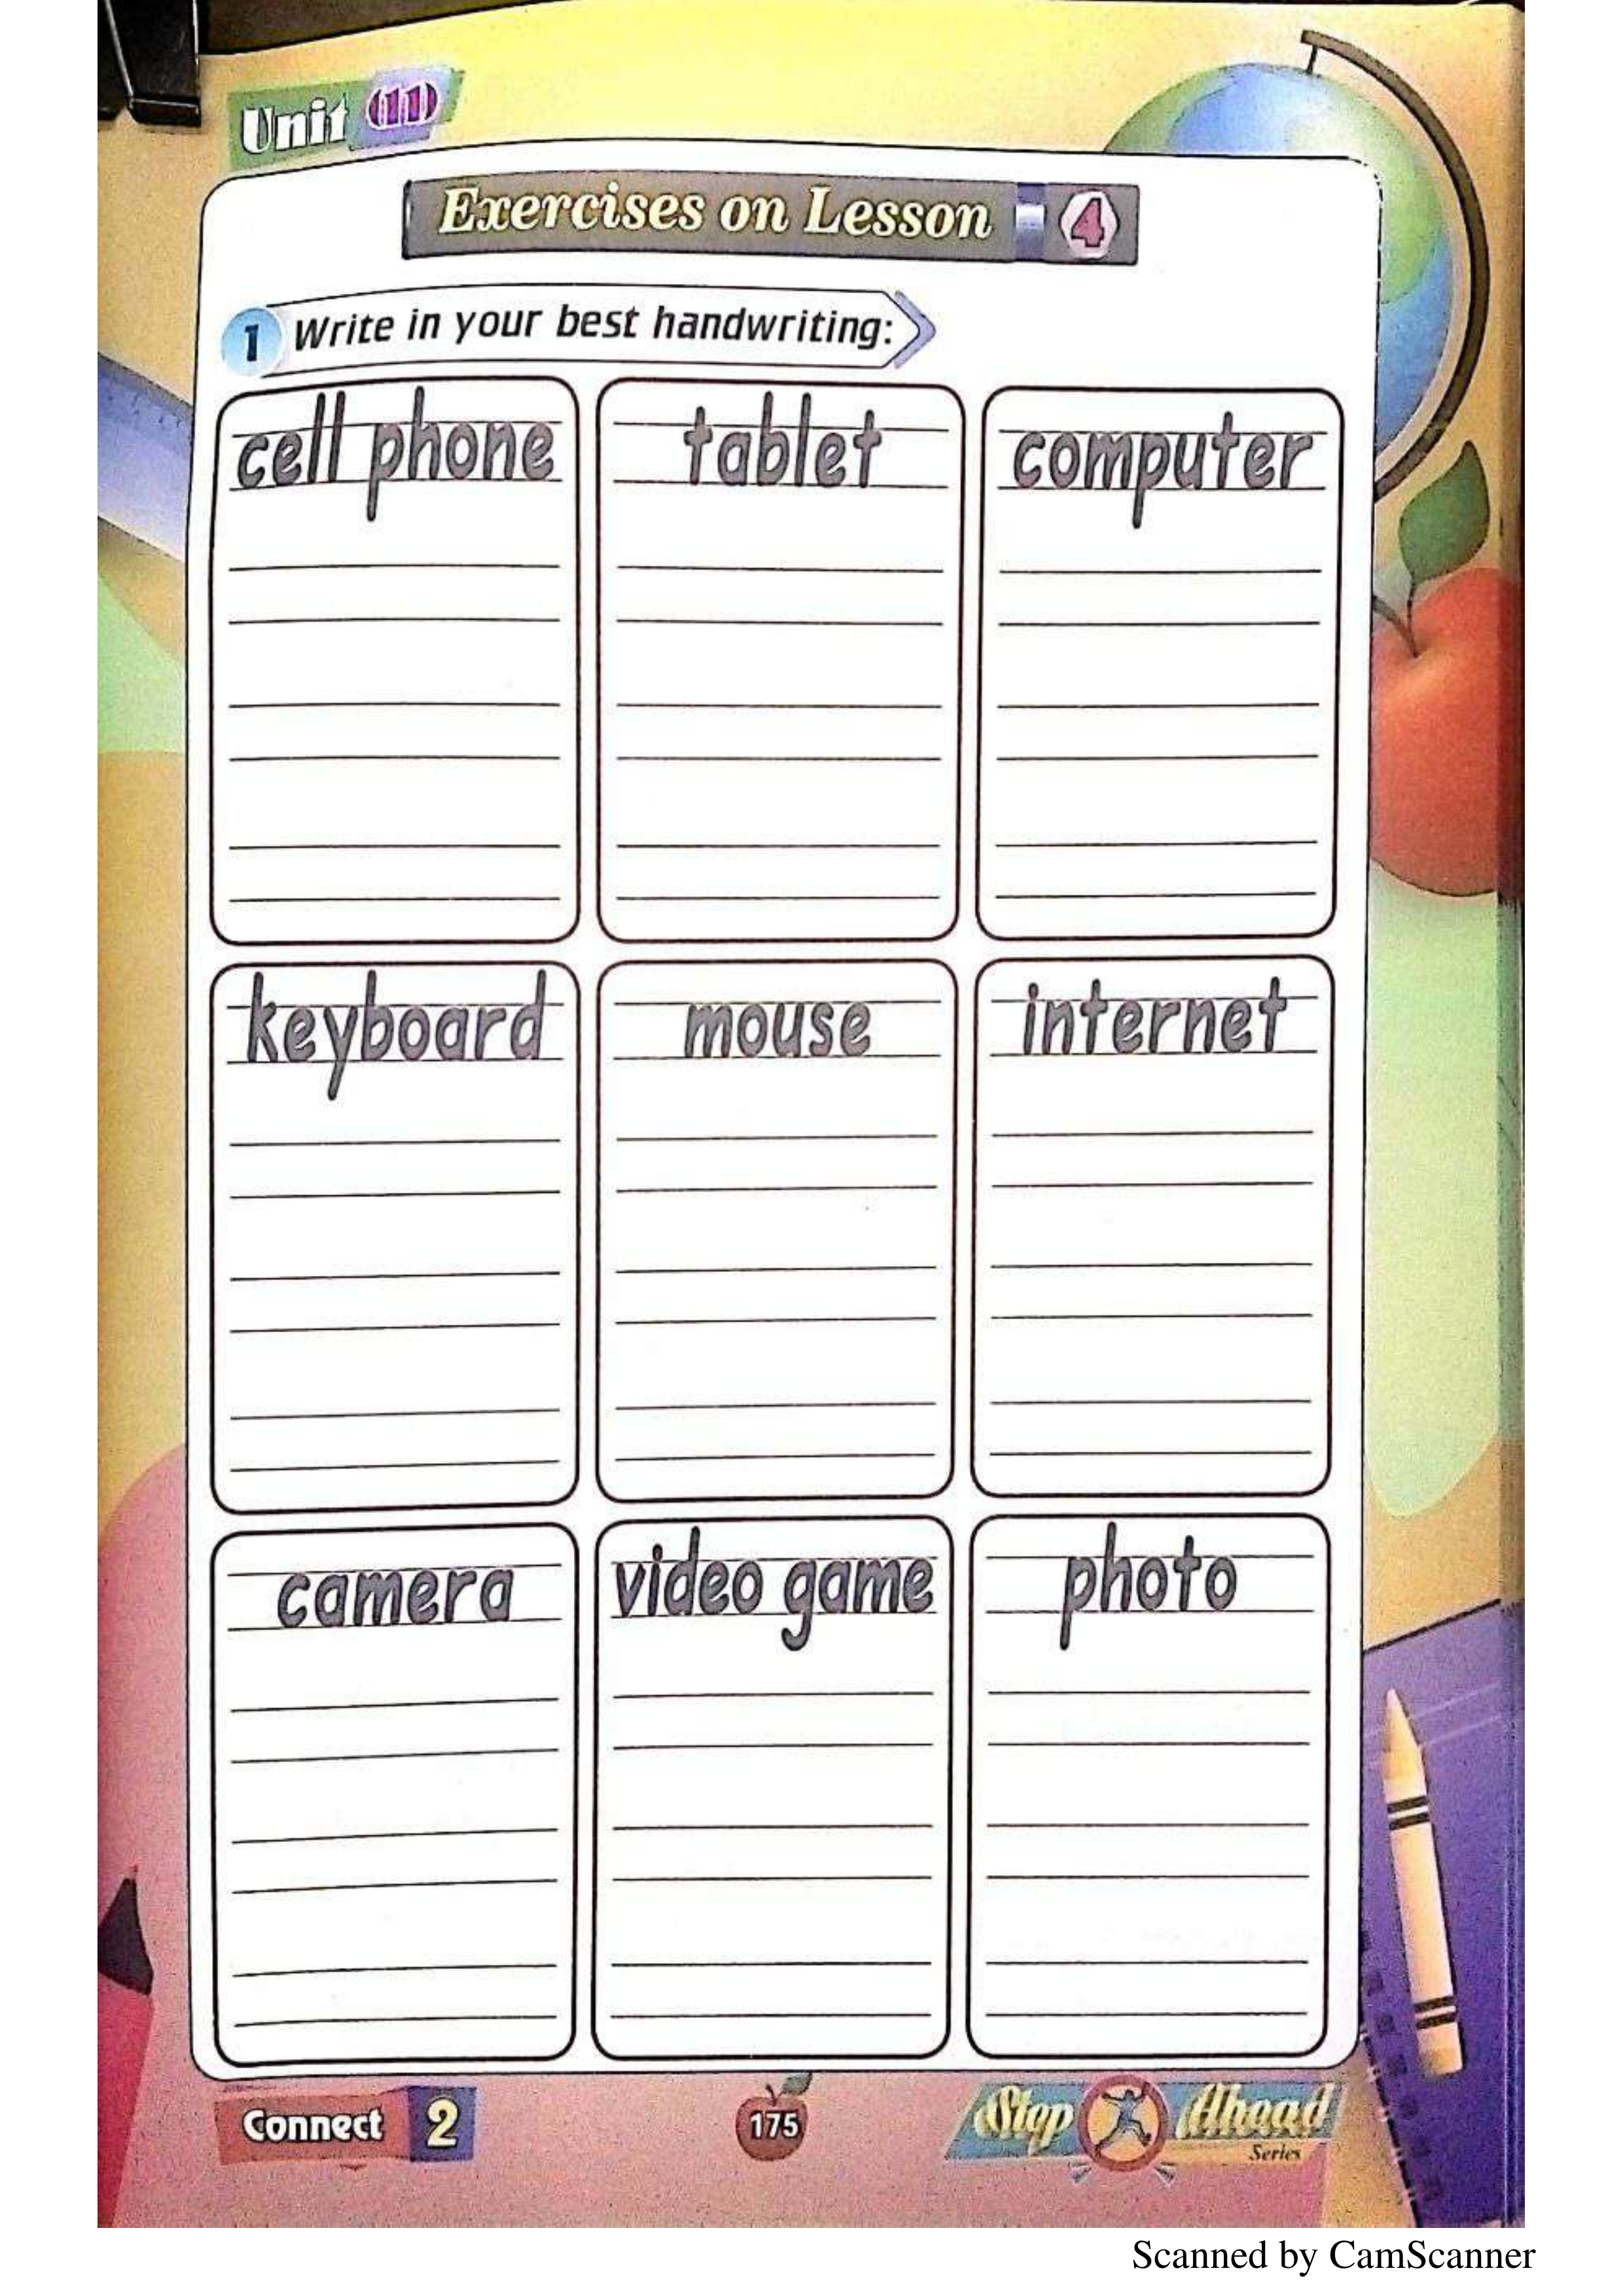 Unit 11
Exercises on Lesson 4
1 Write in your best handwriting:
cell phone tablet computer
keyboard mouse internet
camera video game photo
Connect 2
175
Step Ahead
Series
Scanned by CamScanner